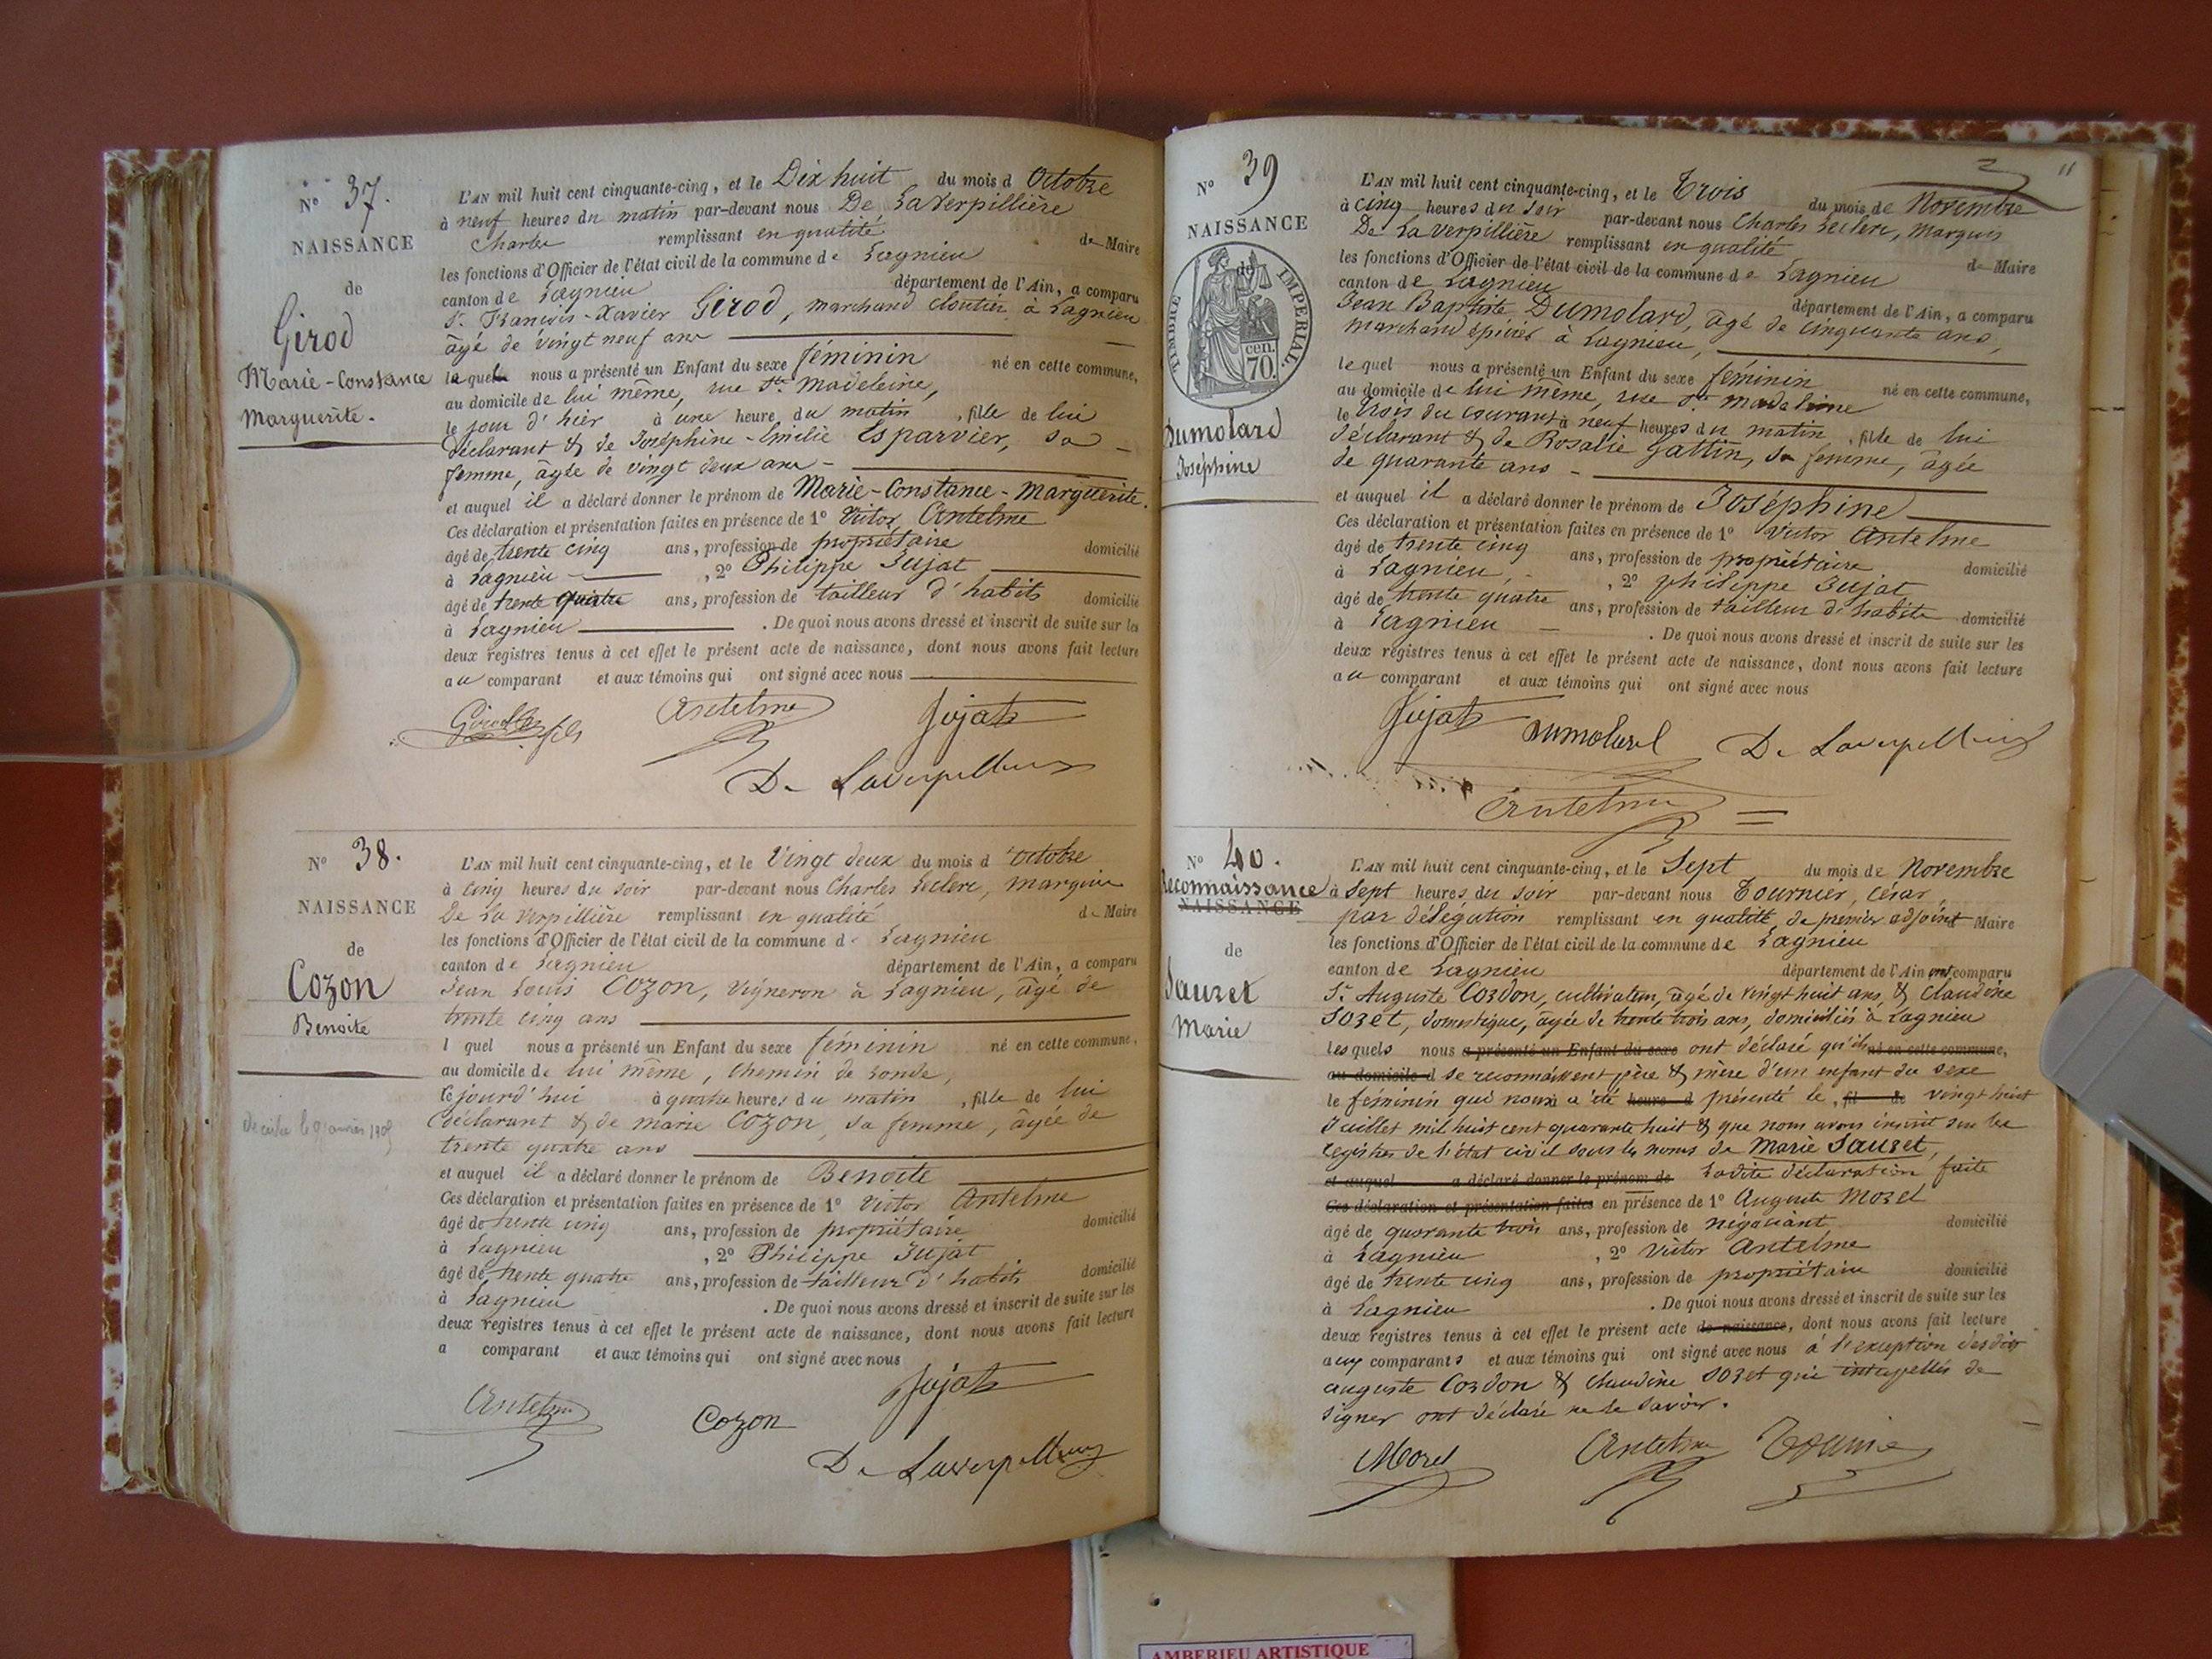 N° 37.
NAISSANCE
de
Girod
Marie-Constance
Marguerite.
L'AN mil huit cent cinquante-cinq, et le Dix huit du mois d Octobre
à neuf heures du matin par-devant nous De Laverpillière
Charles remplissant en qualité de Maire
les fonctions d'Officier de l'état civil de la commune de Lagnieu
canton de Lagnieu département de l'Ain, a comparu
Sr. François-Xavier Girod, marchand cloutier à Lagnieu
âgé de vingt neuf ans
lequel nous a présenté un Enfant du sexe féminin né en cette commune,
au domicile de lui même, rue Ste Madeleine,
le jour d'hier à une heure du matin, fille de lui
déclarant & de Joséphine-Emélie Esparvier, sa
femme, âgée de vingt deux ans -
et auquel il a déclaré donner le prénom de Marie-Constance-Marguerite.
Ces déclaration et présentation faites en présence de 1° Victor Antelme
âgé de trente cinq ans, profession de propriétaire domicilié
à Lagnieu , 2° Philippe Jujat
âgé de trente quatre ans, profession de tailleur d'habits domicilié
à Lagnieu . De quoi nous avons dressé et inscrit de suite sur les
deux registres tenus à cet effet le présent acte de naissance, dont nous avons fait lecture
au comparant et aux témoins qui ont signé avec nous
fils Antelme Jujat
De Laverpilliere
N° 38.
NAISSANCE
de
Cozon
Benoite
L'AN mil huit cent cinquante-cinq, et le Vingt deux du mois d'octobre
à cinq heures du soir par-devant nous Charles Leclerc, marquis
De La Verpillière remplissant en qualité de Maire
les fonctions d'Officier de l'état civil de la commune de Lagnieu
canton de Lagnieu département de l'Ain, a comparu
Jean Louis Cozon, vigneron à Lagnieu, âgé de
trente cinq ans
l quel nous a présenté un Enfant du sexe féminin né en cette commune,
au domicile de lui même, chemin de ronde,
le jourd'hui à quatre heures du matin, fille de lui
déclarant & de marie Cozon, sa femme, âgée de
trente quatre ans
et auquel il a déclaré donner le prénom de Benoite
Ces déclaration et présentation faites en présence de 1° Victor Antelme
âgé de trente cinq ans, profession de propriétaire domicilié
à Lagnieu , 2° Philippe Jujat
âgé de trente quatre ans, profession de tailleur d'habits domicilié
à Lagnieu . De quoi nous avons dressé et inscrit de suite sur les
deux registres tenus à cet effet le présent acte de naissance, dont nous avons fait lecture
a comparant et aux témoins qui ont signé avec nous
Antelme Cozon Jujat
De Laverpilliere
11
N° 39
NAISSANCE
de
TIMBRE IMPERIAL
70. cen.
Dumolard
Joséphine
L'AN mil huit cent cinquante-cinq, et le Trois du mois de Novembre
à cinq heures du soir par-devant nous Charles Leclerc, Marquis
De La Verpillière remplissant en qualité de Maire
les fonctions d'Officier de l'état civil de la commune de Lagnieu
canton de Lagnieu département de l'Ain, a comparu
Jean Baptiste Dumolard, âgé de cinquante ans,
marchand épicier à Lagnieu,
le quel nous a présenté un Enfant du sexe féminin né en cette commune,
au domicile de lui même, rue Ste madeleine
le trois du courant à neuf heures du matin, fille de lui
déclarant & de Rosalie Gattin, sa femme, âgée
de quarante ans -
et auquel il a déclaré donner le prénom de Joséphine
Ces déclaration et présentation faites en présence de 1° Victor Antelme
âgé de trente cinq ans, profession de propriétaire domicilié
à Lagnieu, , 2° Philippe Jujat
âgé de trente quatre ans, profession de tailleur d'habits domicilié
à Lagnieu . De quoi nous avons dressé et inscrit de suite sur les
deux registres tenus à cet effet le présent acte de naissance, dont nous avons fait lecture
au comparant et aux témoins qui ont signé avec nous
Jujat Dumolard De Laverpilliere
Antelme
N° 40.
Reconnaissance
NAISSANCE
de
Sauzet
Marie
L'AN mil huit cent cinquante-cinq, et le Sept du mois de Novembre
à Sept heures du soir par-devant nous Tournier, César,
par délégation remplissant en qualité de premier adjoint Maire
les fonctions d'Officier de l'état civil de la commune de Lagnieu
canton de Lagnieu département de l'Ain ont comparu
Sr. Auguste Cordon, cultivateur, âgé de vingt huit ans, & Claudine
Sozet, domestique, âgée de trente trois ans, domiciliés à Lagnieu
lesquels nous a présenté un Enfant du sexe ont déclaré qu'ils né en cette commune,
au domicile d se reconnaissent père & mère d'un enfant du sexe
le féminin qui nous a été heure d présenté le, fil de vingt huit
Juillet mil huit cent quarante huit & que nous avons inscrit sur les
registres de l'état civil sous les noms de Marie Sauzet,
et auquel a déclaré donner le prénom de Ladite déclaration faite
Ces déclaration et présentation faites en présence de 1° Auguste Morel
âgé de quarante trois ans, profession de négociant domicilié
à Lagnieu , 2° Victor Antelme
âgé de trente cinq ans, profession de propriétaire domicilié
à Lagnieu . De quoi nous avons dressé et inscrit de suite sur les
deux registres tenus à cet effet le présent acte de naissance, dont nous avons fait lecture
aux comparants et aux témoins qui ont signé avec nous à l'exception desdits
auguste Cordon & Claudine Sozet qui interpellés de
signer ont déclaré ne le savoir.
Morel Antelme Tournier
AMBERIEU ARTISTIQUE